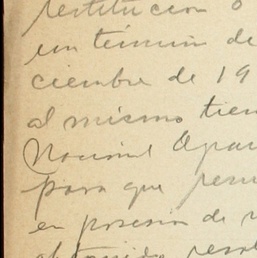 restitucion o
un términ de
ciembre de 19
al mismo tiem
Nacional Agrar
para que
en posesion de